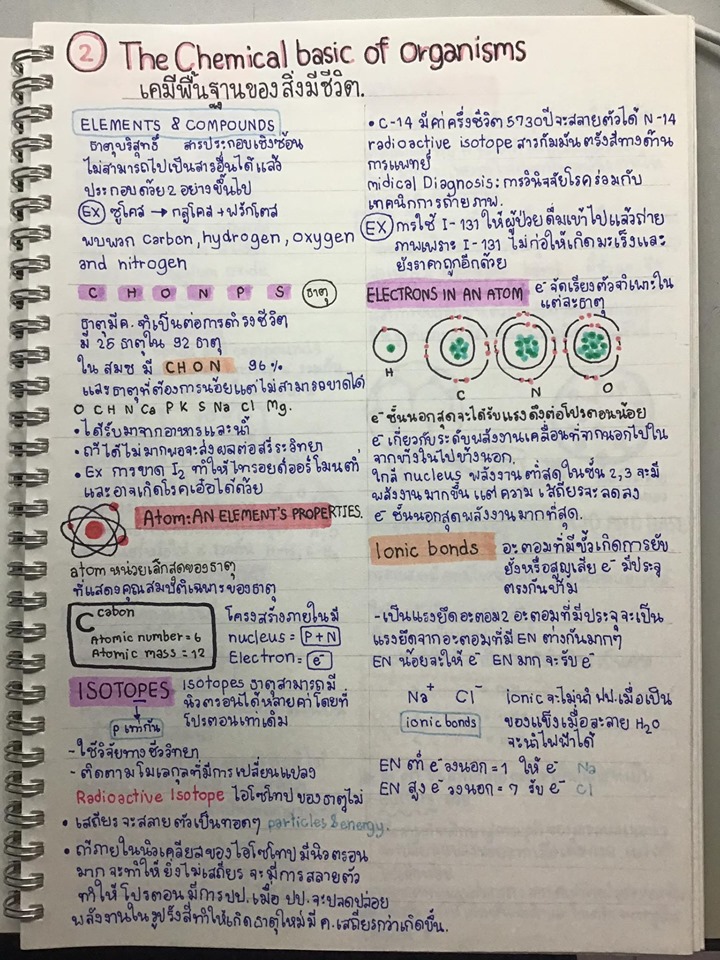 2 The Chemical basic of organisms
เคมีพื้นฐานของสิ่งมีชีวิต.
ELEMENTS & COMPOUNDS
ธาตุบริสุทธิ์ สารประกอบเชิงซ้อน
ไม่สามารถไปเป็นสารอื่นได้แล้ว
ประกอบด้วย 2 อย่างขึ้นไป
EX ซูโคส → กลูโคส + ฟรักโตส
พบพวก carbon, hydrogen, oxygen
and nitrogen
C H O N P S ธาตุ
ธาตุมีค. จำเป็นต่อการดำรงชีวิต
มี 25 ธาตุใน 92 ธาตุ
ใน สมช มี CHON 96%
และธาตุที่ต้องการน้อยแต่ไม่สามารถขาดได้
O C H N Ca P K S Na Cl Mg.
• ได้รับมาจากอาหารและน้ำ
• ถ้าได้ไม่มากพอจะส่งผลต่อสรีระวิทยา
• Ex การขาด I₂ ทำให้ไทรอยด์ฮอร์โมนต่ำ
และอาจเกิดโรคเอ๋อได้ด้วย
Atom: AN ELEMENT'S PROPERTIES.
atom หน่วยเล็กสุดของธาตุ
ที่แสดงคุณสมบัติเฉพาะของธาตุ
C cabon
Atomic number = 6
Atomic mass = 12
โครงสร้างภายในมี
nucleus = P+N
Electron = e⁻
ISOTOPES isotopes ธาตุสามารถมี
นิวตรอนได้หลายค่าโดยที่
โปรตอนเท่าเดิม
P เท่ากัน
- ใช้วิจัยทางชีววิทยา
- ติดตามโมเลกุลที่มีการเปลี่ยนแปลง
Radioactive Isotope ไอโซโทปของธาตุไม่
• เสถียรจะสลายตัวเป็นทอดๆ particles & energy.
• ถ้าภายในนิวเคลียสของไอโซโทปมีนิวตรอน
มากจะทำให้ยิ่งไม่เสถียรจะมีการสลายตัว
ทำให้โปรตอนมีการปป. เมื่อ ปป. จะปลดปล่อย
พลังงานในรูปรังสีทำให้เกิดธาตุใหม่มี ค. เสถียรกว่าเกิดขึ้น.
• C-14 มีค่าครึ่งชีวิต 5730 ปีจะสลายตัวได้ N-14
radioactive isotope สารกัมมันตรังสีทางด้าน
การแพทย์
midical Diagnosis: การวินิจฉัยโรคร่วมกับ
เทคนิคการถ่ายภาพ.
EX การใช้ I-131 ให้ผู้ป่วยดื่มเข้าไปแล้วถ่าย
ภาพเพราะ I-131 ไม่ก่อให้เกิดมะเร็งและ
ยังราคาถูกอีกด้วย
ELECTRONS IN AN ATOM e⁻ จัดเรียงตัวจำเพาะใน
แต่ละธาตุ
H C N O
e⁻ ชั้นนอกสุดจะได้รับแรงดึงต่อโปรตอนน้อย
e⁻ เกี่ยวกับระดับพลังงานเคลื่อนที่จากนอกไปใน
จากข้างในไปข้างนอก.
ใกล้ nucleus พลังงานต่ำสุดในชั้น 2,3 จะมี
พลังงานมากขึ้น แต่ความเสถียรจะลดลง
e⁻ ชั้นนอกสุดพลังงานมากที่สุด.
Ionic bonds อะตอมที่มีขั้วเกิดการยับ
ยั้งหรือสูญเสีย e⁻ มีประจุ
ตรงกันข้าม
- เป็นแรงยึดอะตอม 2 อะตอมที่มีประจุจะเป็น
แรงยึดจากอะตอมที่มี EN ต่างกันมากๆ
EN น้อยจะให้ e⁻ EN มากจะรับ e⁻
Na⁺ Cl⁻
ionic bonds
ionic จะไม่นำ ฟฟ. เมื่อเป็น
ของแข็งเมื่อละลาย H₂O
จะนำไฟฟ้าได้
EN ต่ำ e⁻ วงนอก = 1 ให้ e⁻ Na
EN สูง e⁻ วงนอก = 7 รับ e⁻ Cl